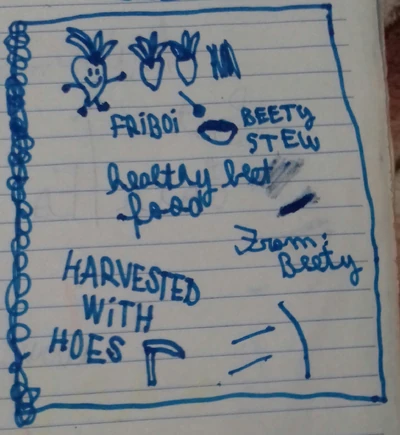 FRiBOi
BEETY
STEW
healthy beet
food
From:
Beety
HARVESTED
WiTH
HOES